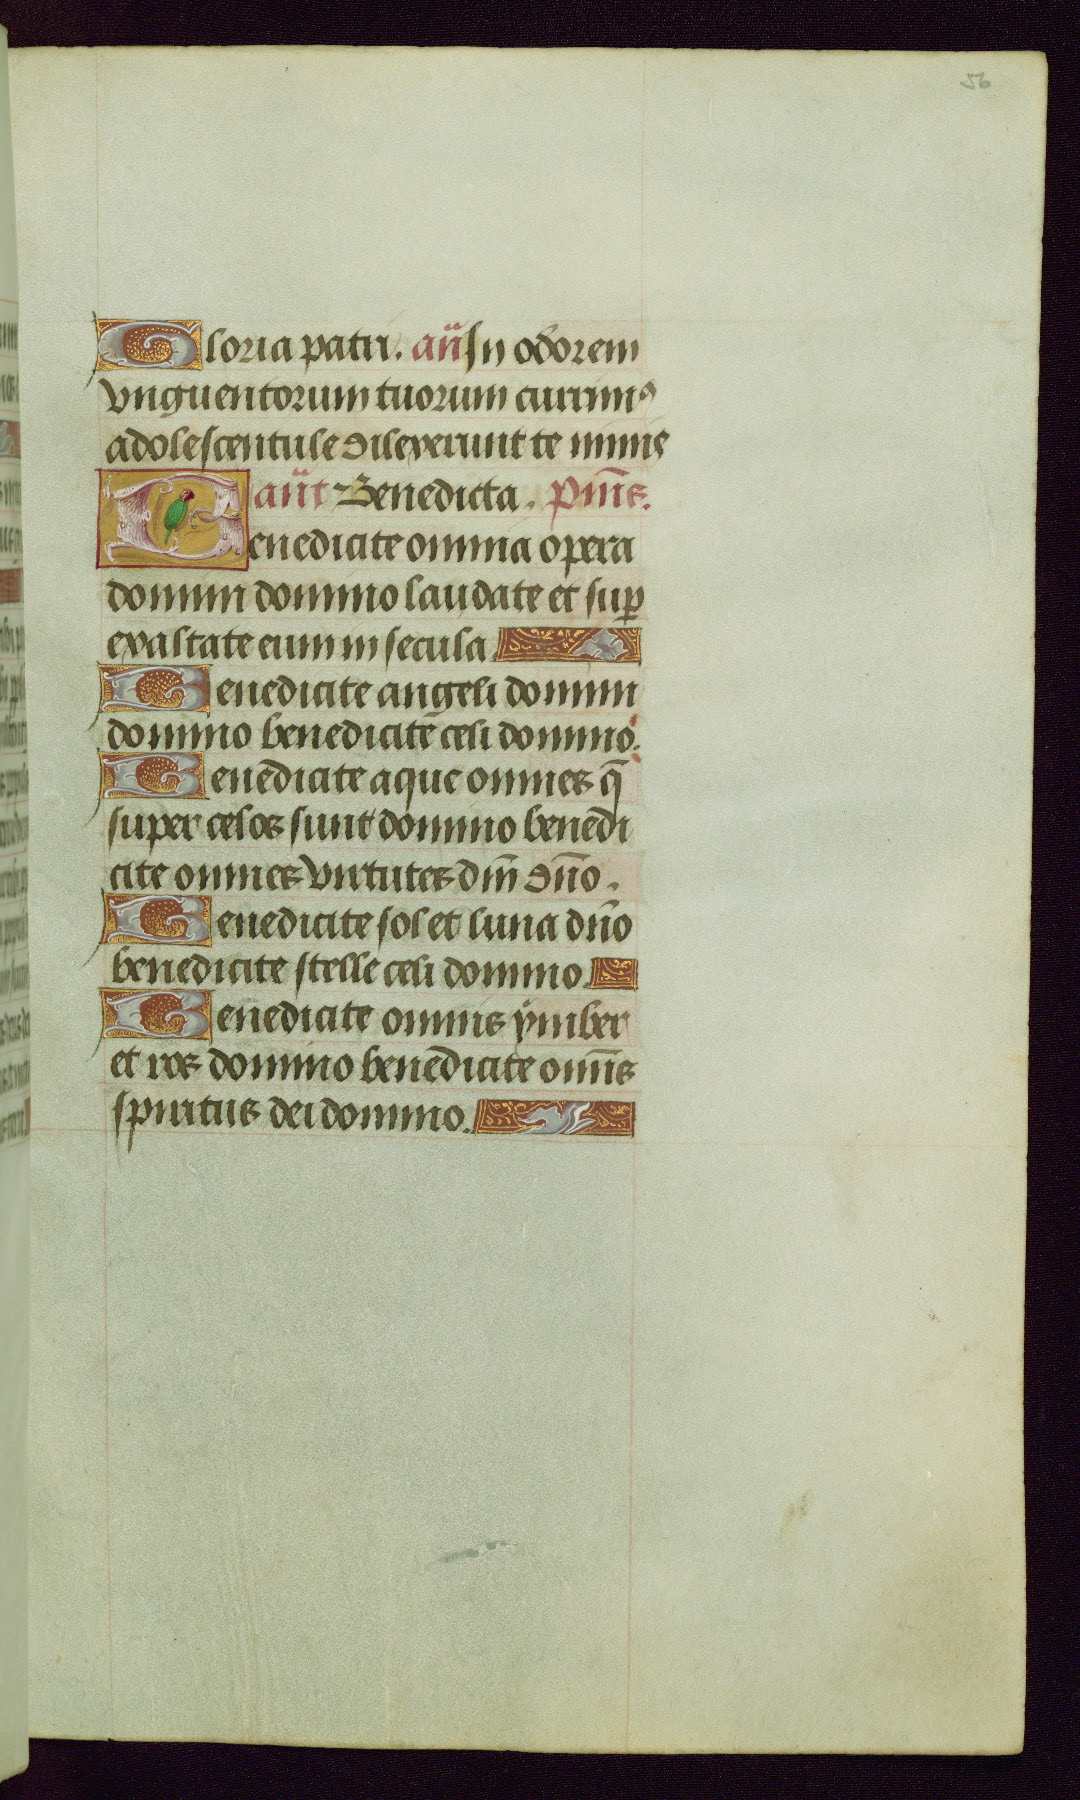 56
Gloria patri. añ In odorem
vnguentorum tuorum currimꝰ
adolescentule dilexerunt te nimis
añt Benedicta. Psm̄s.
Benedicite omnia opera
domini domino laudate et suꝑ
exaltate eum in secula
Benedicite angeli domini
domino benedicite celi domino.
Benedicite aque omnes q̄
super celos sunt domino benedi
cite omnes virtutes dm̄i dn̄o.
Benedicite sol et luna dn̄o
benedicite stelle celi domino
Benedicite omnis ymber
et ros domino benedicite omn̄s
spiritus dei domino.